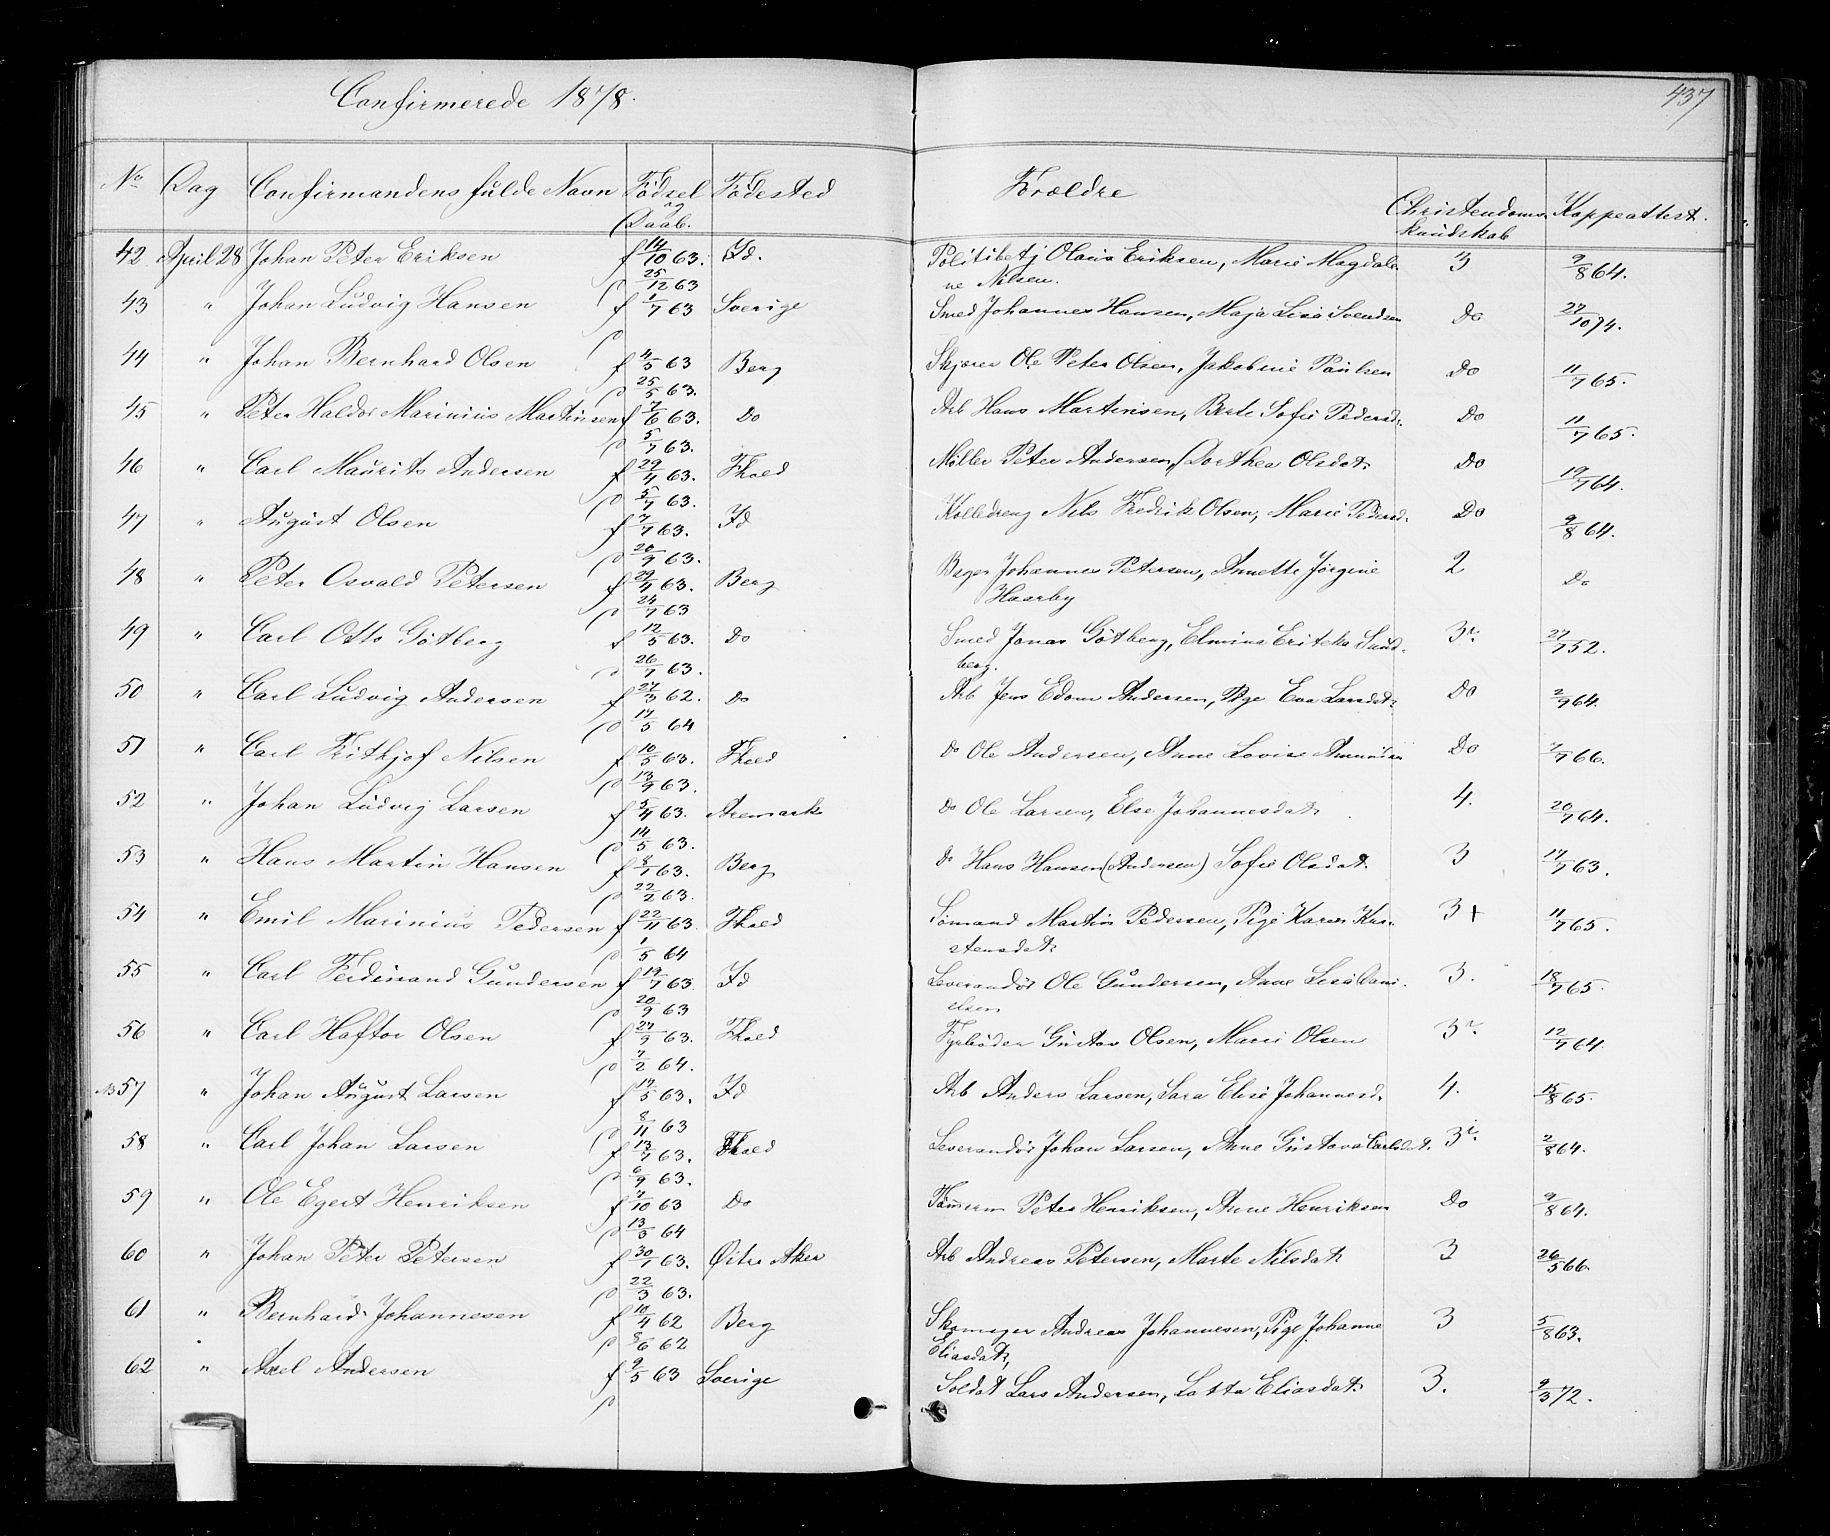 Confirmerede 1878.
437
No Dag Confirmandens fulde Navn Fødsel og Daab. Fødested Forældre Christendoms kundskab Koppeattest.
42 April 28 Johan Peter Eriksen f 14/10 63. Id. Politibetj Olaus Eriksen, Marie Magdale- 3 9/8 64.
d 25/12 63 ne Nilsen.
43 " Johan Ludvig Hansen f 1/7 63 Sverige Smed Johannes Hansen, Maja Lisa Svendsen Do 27/10 74.
d
44 " Johan Bernhard Olsen f 4/3 63 Berg Skjærer Ole Peter Olsen, Jakobine Paulsen Do 11/7 65.
d 25/5 63.
45 " Peter Haldor Marinius Martinsen f 7/6 63. Do Arb Hans Martinsen, Berte Sofie Pedersd. Do 11/7 65.
d 5/7 63.
46 " Carl Maurits Andersen f 29/4 63. Fhald Møller Peter Andersen, Dorthea Olsdat. Do 19/7 64.
d 5/7 63.
47 " August Olsen f 7/7 63. Id Nils Fredrik Olsen, Marie Pedersd. Do 9/8 64.
d 20/9 63.
48 " Peter Osvald Petersen f 29/4 63. Berg Bager Johannes Petersen, Annette Jørgine 2 Do
d 24/7 63 Haarby
49 " Carl Otto Götberg f 12/5 63. Do Smed Jonas Götberg, Elmina Sund- 3 27/7 52.
d 26/7 63. berg.
50 " Carl Ludvig Andersen f 27/3 62. Do Arb Jens Edom Andersen, Pige Eva Larsdat. Do 2/9 64.
d 17/5 64
51 " Carl Frithjof Nilsen f 10/5 63. Fhald do Ole Andersen, Anne Lovise Do 7/7 66.
d 13/9 63.
52 " Johan Ludvig Larsen f 5/4 63. Aremark do Ole Larsen, Else Johannesdat. 4. 20/7 64.
d 14/5 63.
53 " Hans Martin Hansen f 8/1 63. Berg do Hans Hansen (Andersen) Sofie Olsdat. 3 17/7 63.
d 22/2 63.
54 " Emil Marinius Pedersen f 22/11 63. Fhald Sømand Martin Pedersen, Pige Karen Kri- 3+ 11/7 65.
d 1/5 64 stensdat.
55 " Carl Ferdinand Gundersen f 19/7 63. Id Leverandør Ole Gundersen, Anne Lisa Dani- 3. 18/7 65.
d 20/9 63 elsen
56 " Carl Haftor Olsen f 27/9 63. Fhald Fyrbøder Gustav Olsen, Marie Olsen 3 12/7 64.
d 7/2 64.
NB 57 " Johan August Larsen f 17/5 63. Id Arb Anders Larsen, Sara Elise Johannesd. 4. 15/8 65.
d 8/11 63
58 " Carl Johan Larsen f 13/7 63. Fhald Leverandør Johan Larsen, Anne Gustava Carlsdat. 3 2/8 64.
d 6/9 63.
59 " Ole Egert Henriksen f 7/10 63 Do Tømerm Peter Henriksen, Anne Henriksen Do 9/8 64.
d 13/3 64
60 " Johan Peter Petersen f 30/1 63. Østre Aker Arb Andreas Petersen, Marte Nilsdat. 3 26/5 66.
d 22/3 63.
61 " Bernhard Johannesen f 10/4 62 Berg Skomager Andreas Johannesen, Pige Johanne 3 5/8 63.
d 8/6 62 Eliasdat,
62 " Axel Andersen f 9/5 63 Sverige Soldat Lars Andersen, Lotta Eliasdat. 3. 9/3 72.
d